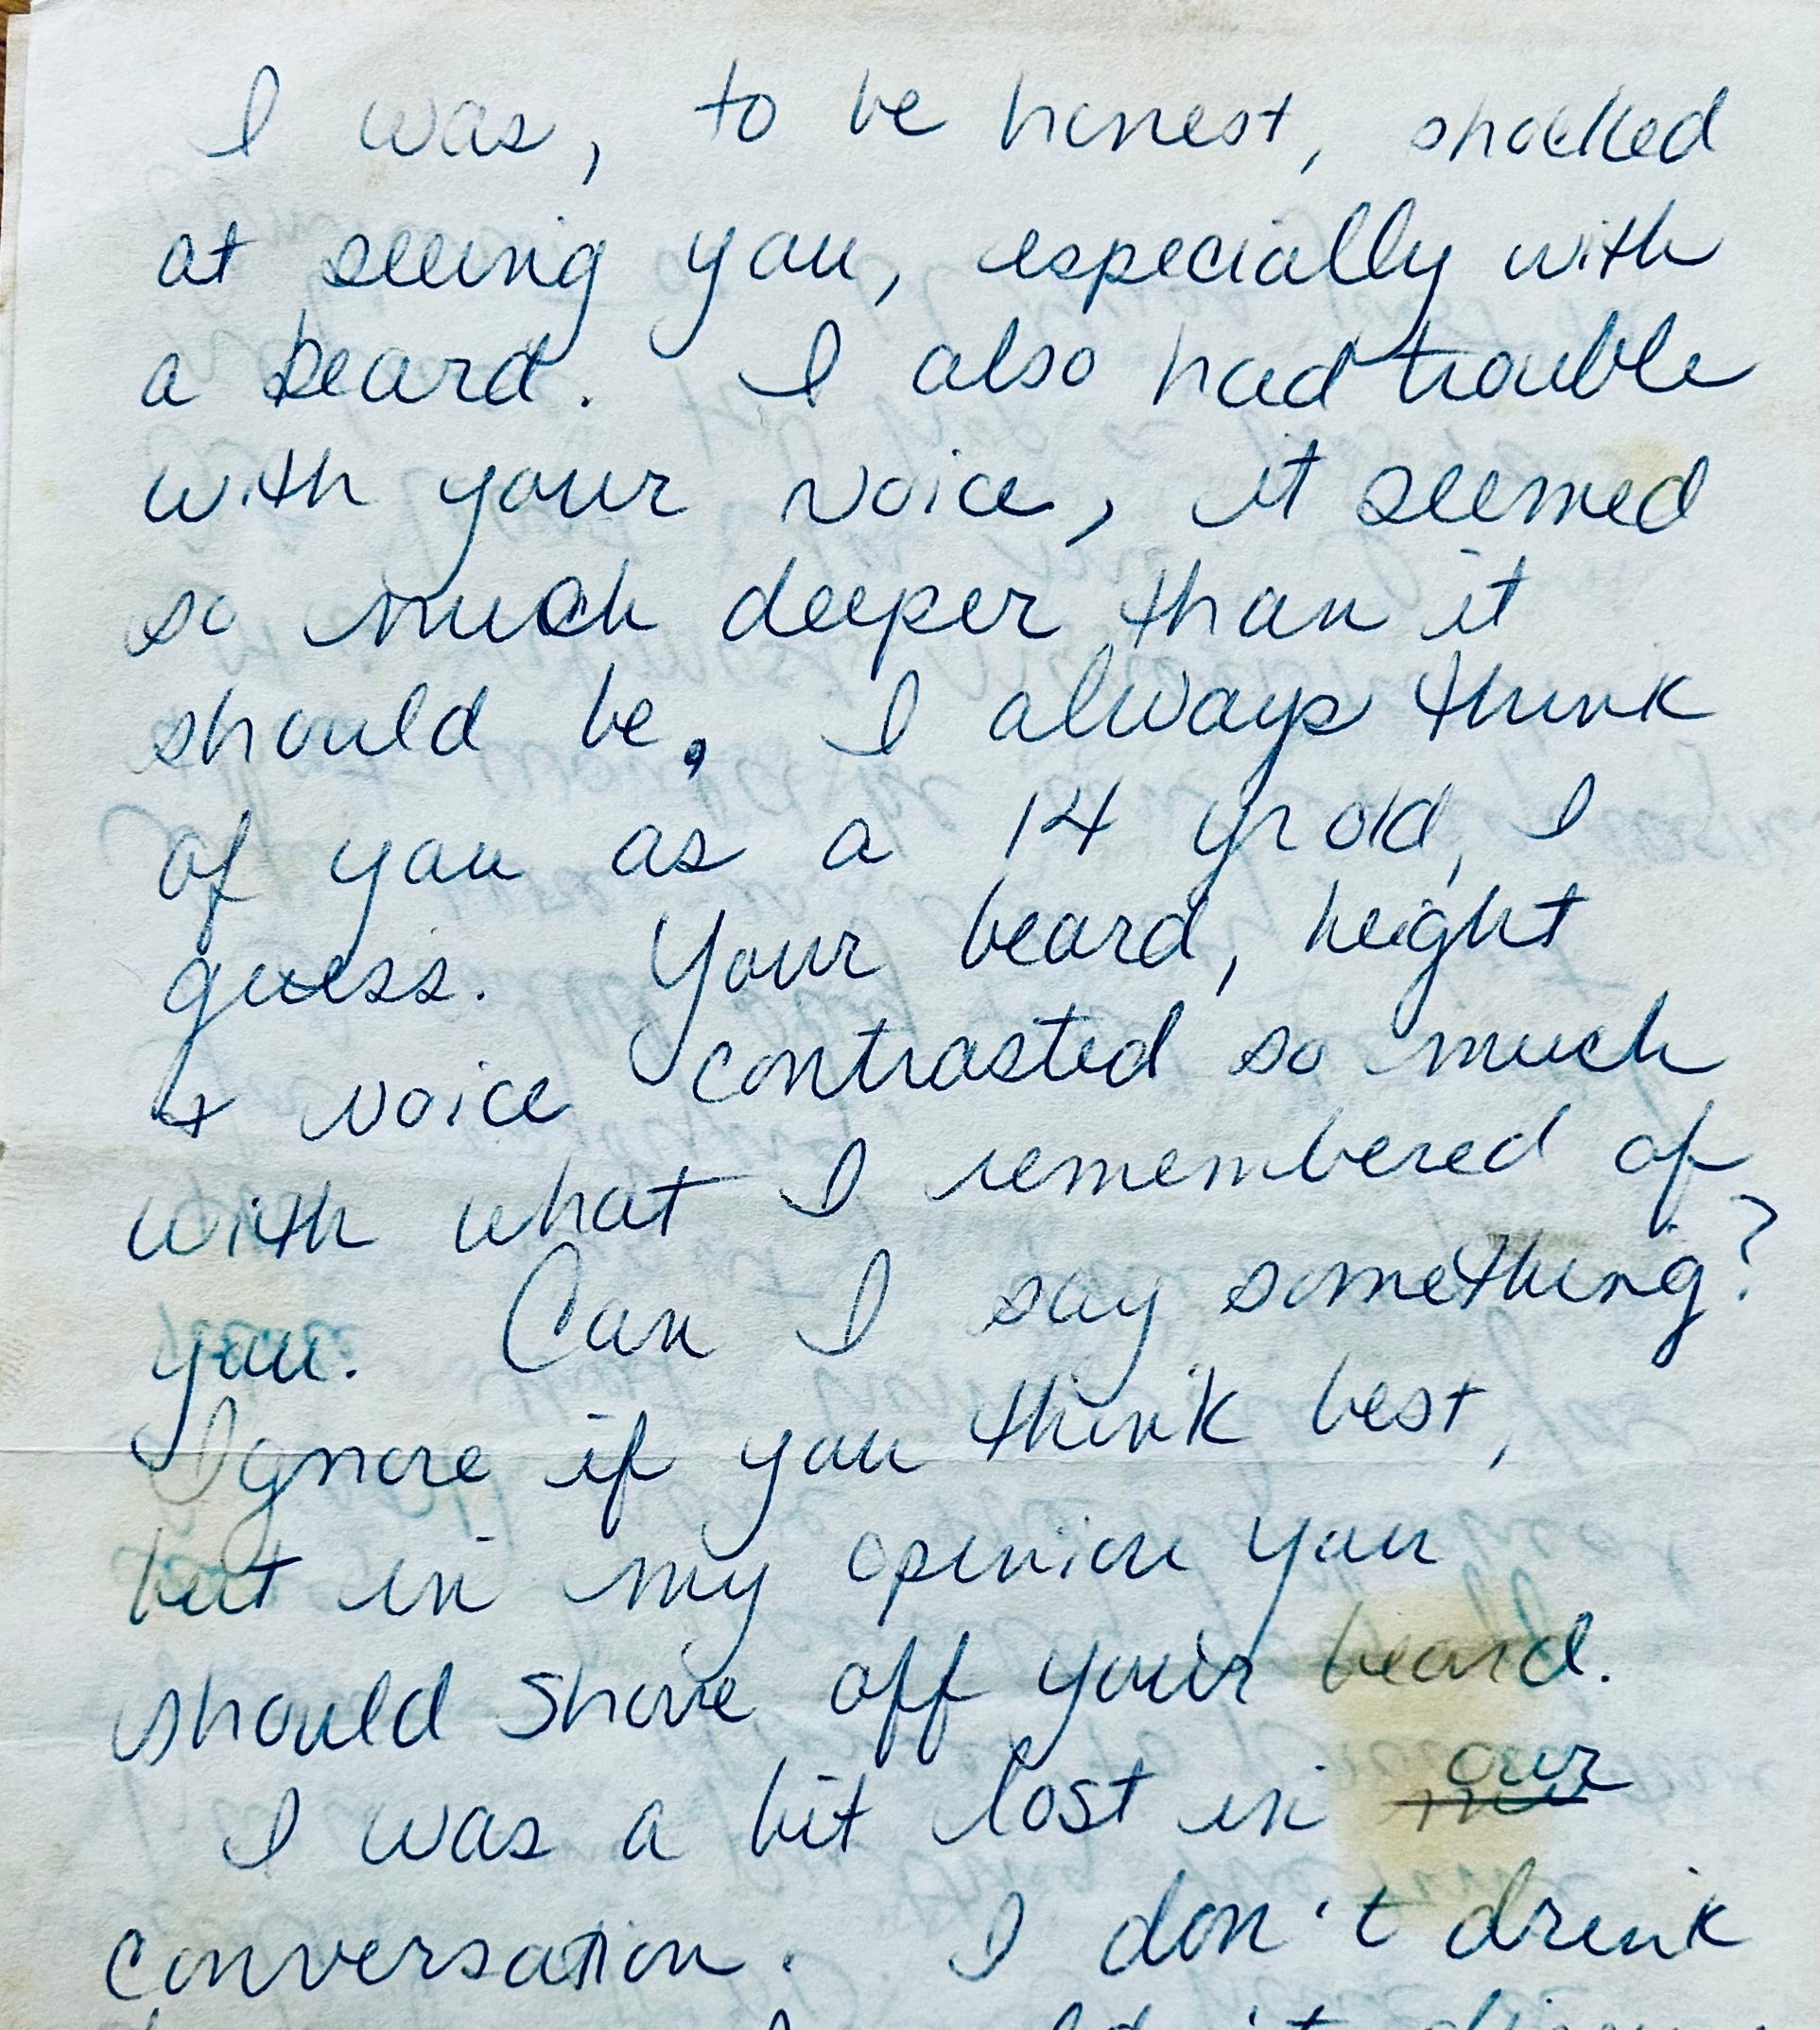 I was, to be honest, shocked
at seeing you, especially with
a beard. I also had trouble
with your voice, it seemed
so much deeper than it
should be. I always think
of you as a 14 yr old, I
guess. Your beard, height
+ voice contrasted so much
with what I remembered of
you. Can I say something?
Ignore if you think best,
but in my opinion you
should shave off your beard.
I was a bit lost in our
conversation. I don't drink